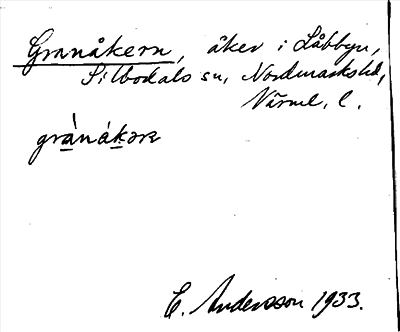 Granåkern, åker i Låbbyn,
Silbodals sn, Nordmarks hd,
Värml. l.
grànákɘrɛ
E. Andersson 1933.